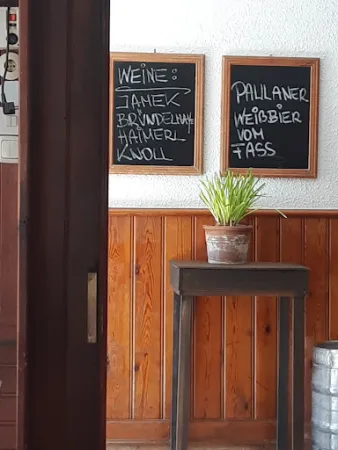 WEINE:
JAMEK
BRÜNDELMAYE
HAIMERL
KNOLL
PAULANER
WEIßBIER
VOM
FASS